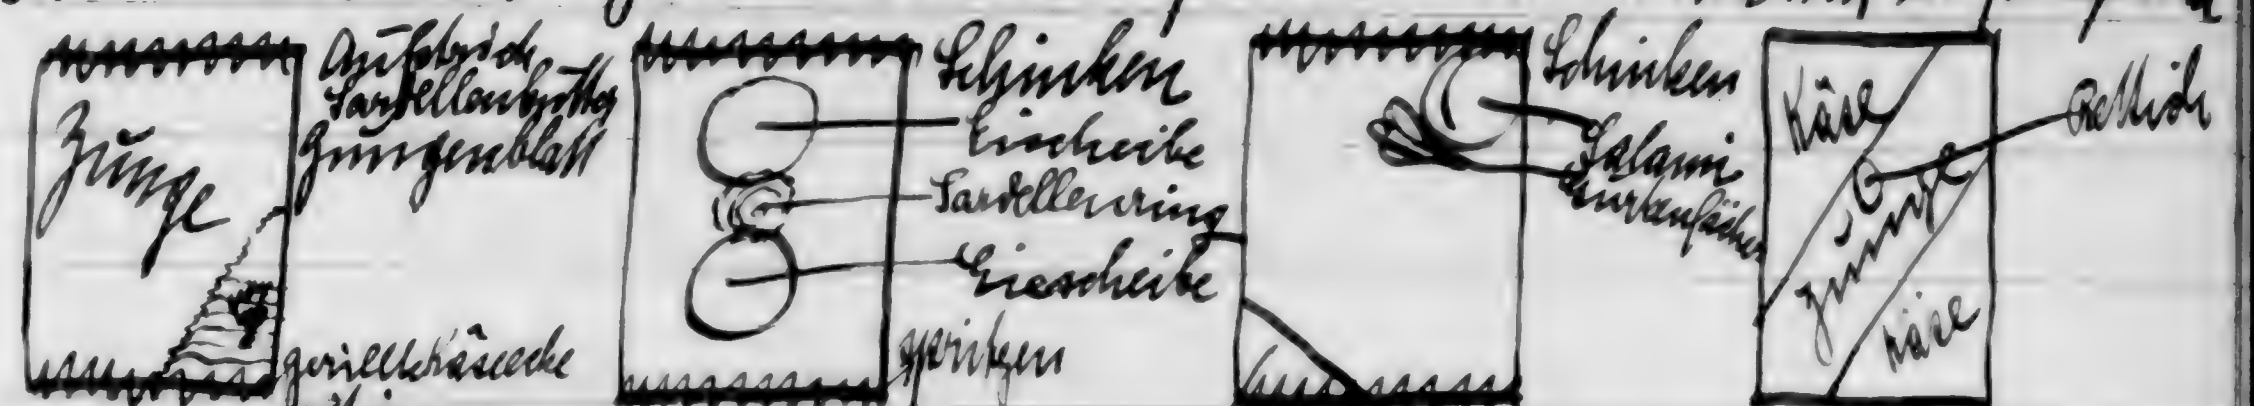 Zunge
Aufstrich
Sardellenbutter
Zungenblatt
gerillte Käseecke
Schinken
Eischeibe
Sardellenring
Eiescheibe
spritzen
Schinken
Salami
Gurkenfächer
Käse
Zunge
Käse
Rettich